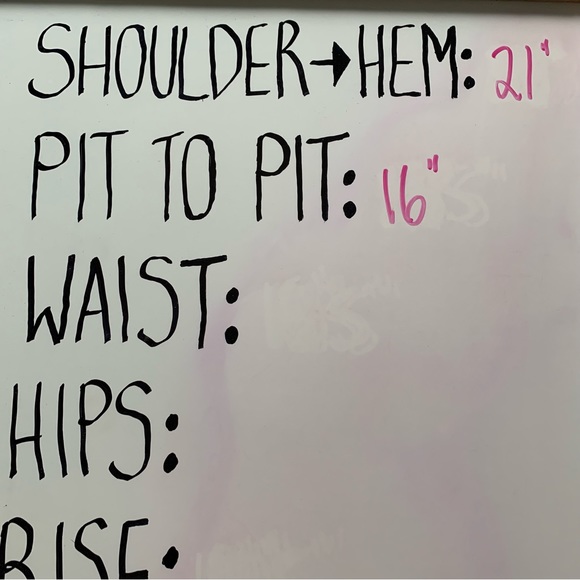 SHOULDER→HEM: 21"
PIT TO PIT: 16"
WAIST:
HIPS:
RISE: